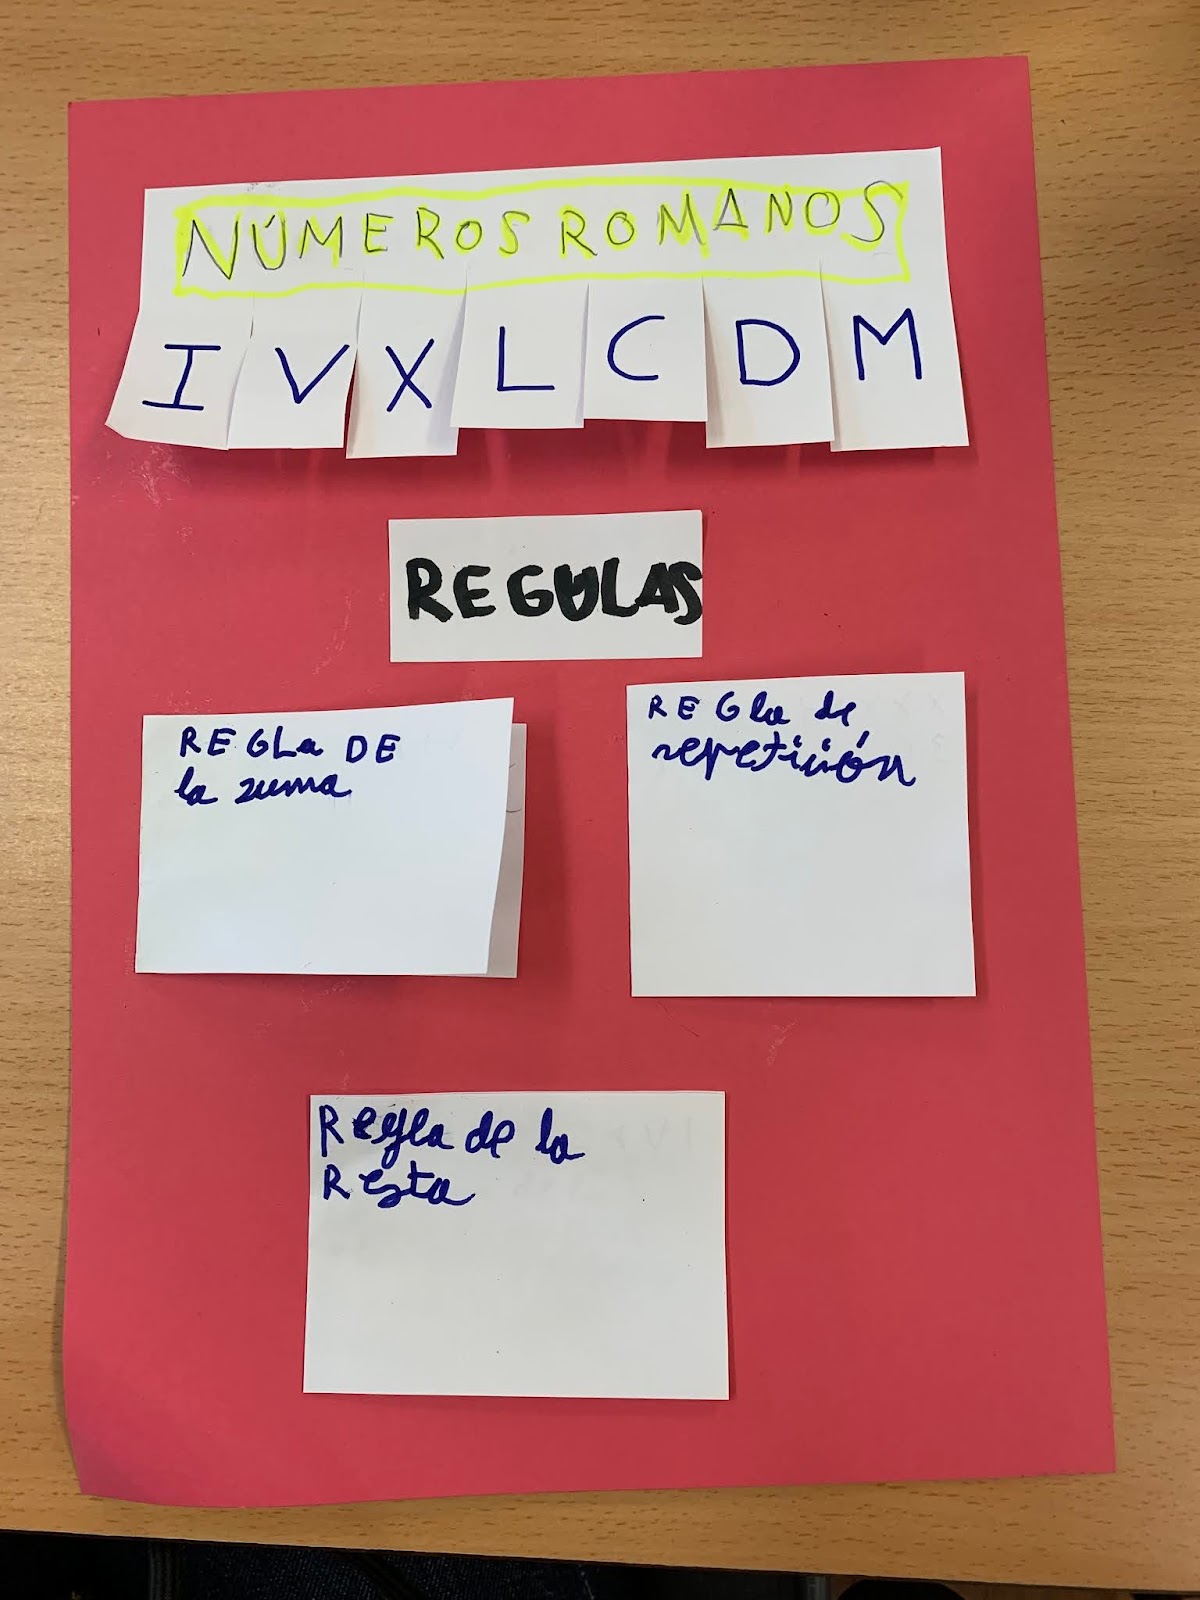 NÚMEROS ROMANOS
I V X L C D M
REGULAS
REGLa DE
la suma
REGla de
repetición
Regla de la
Resta